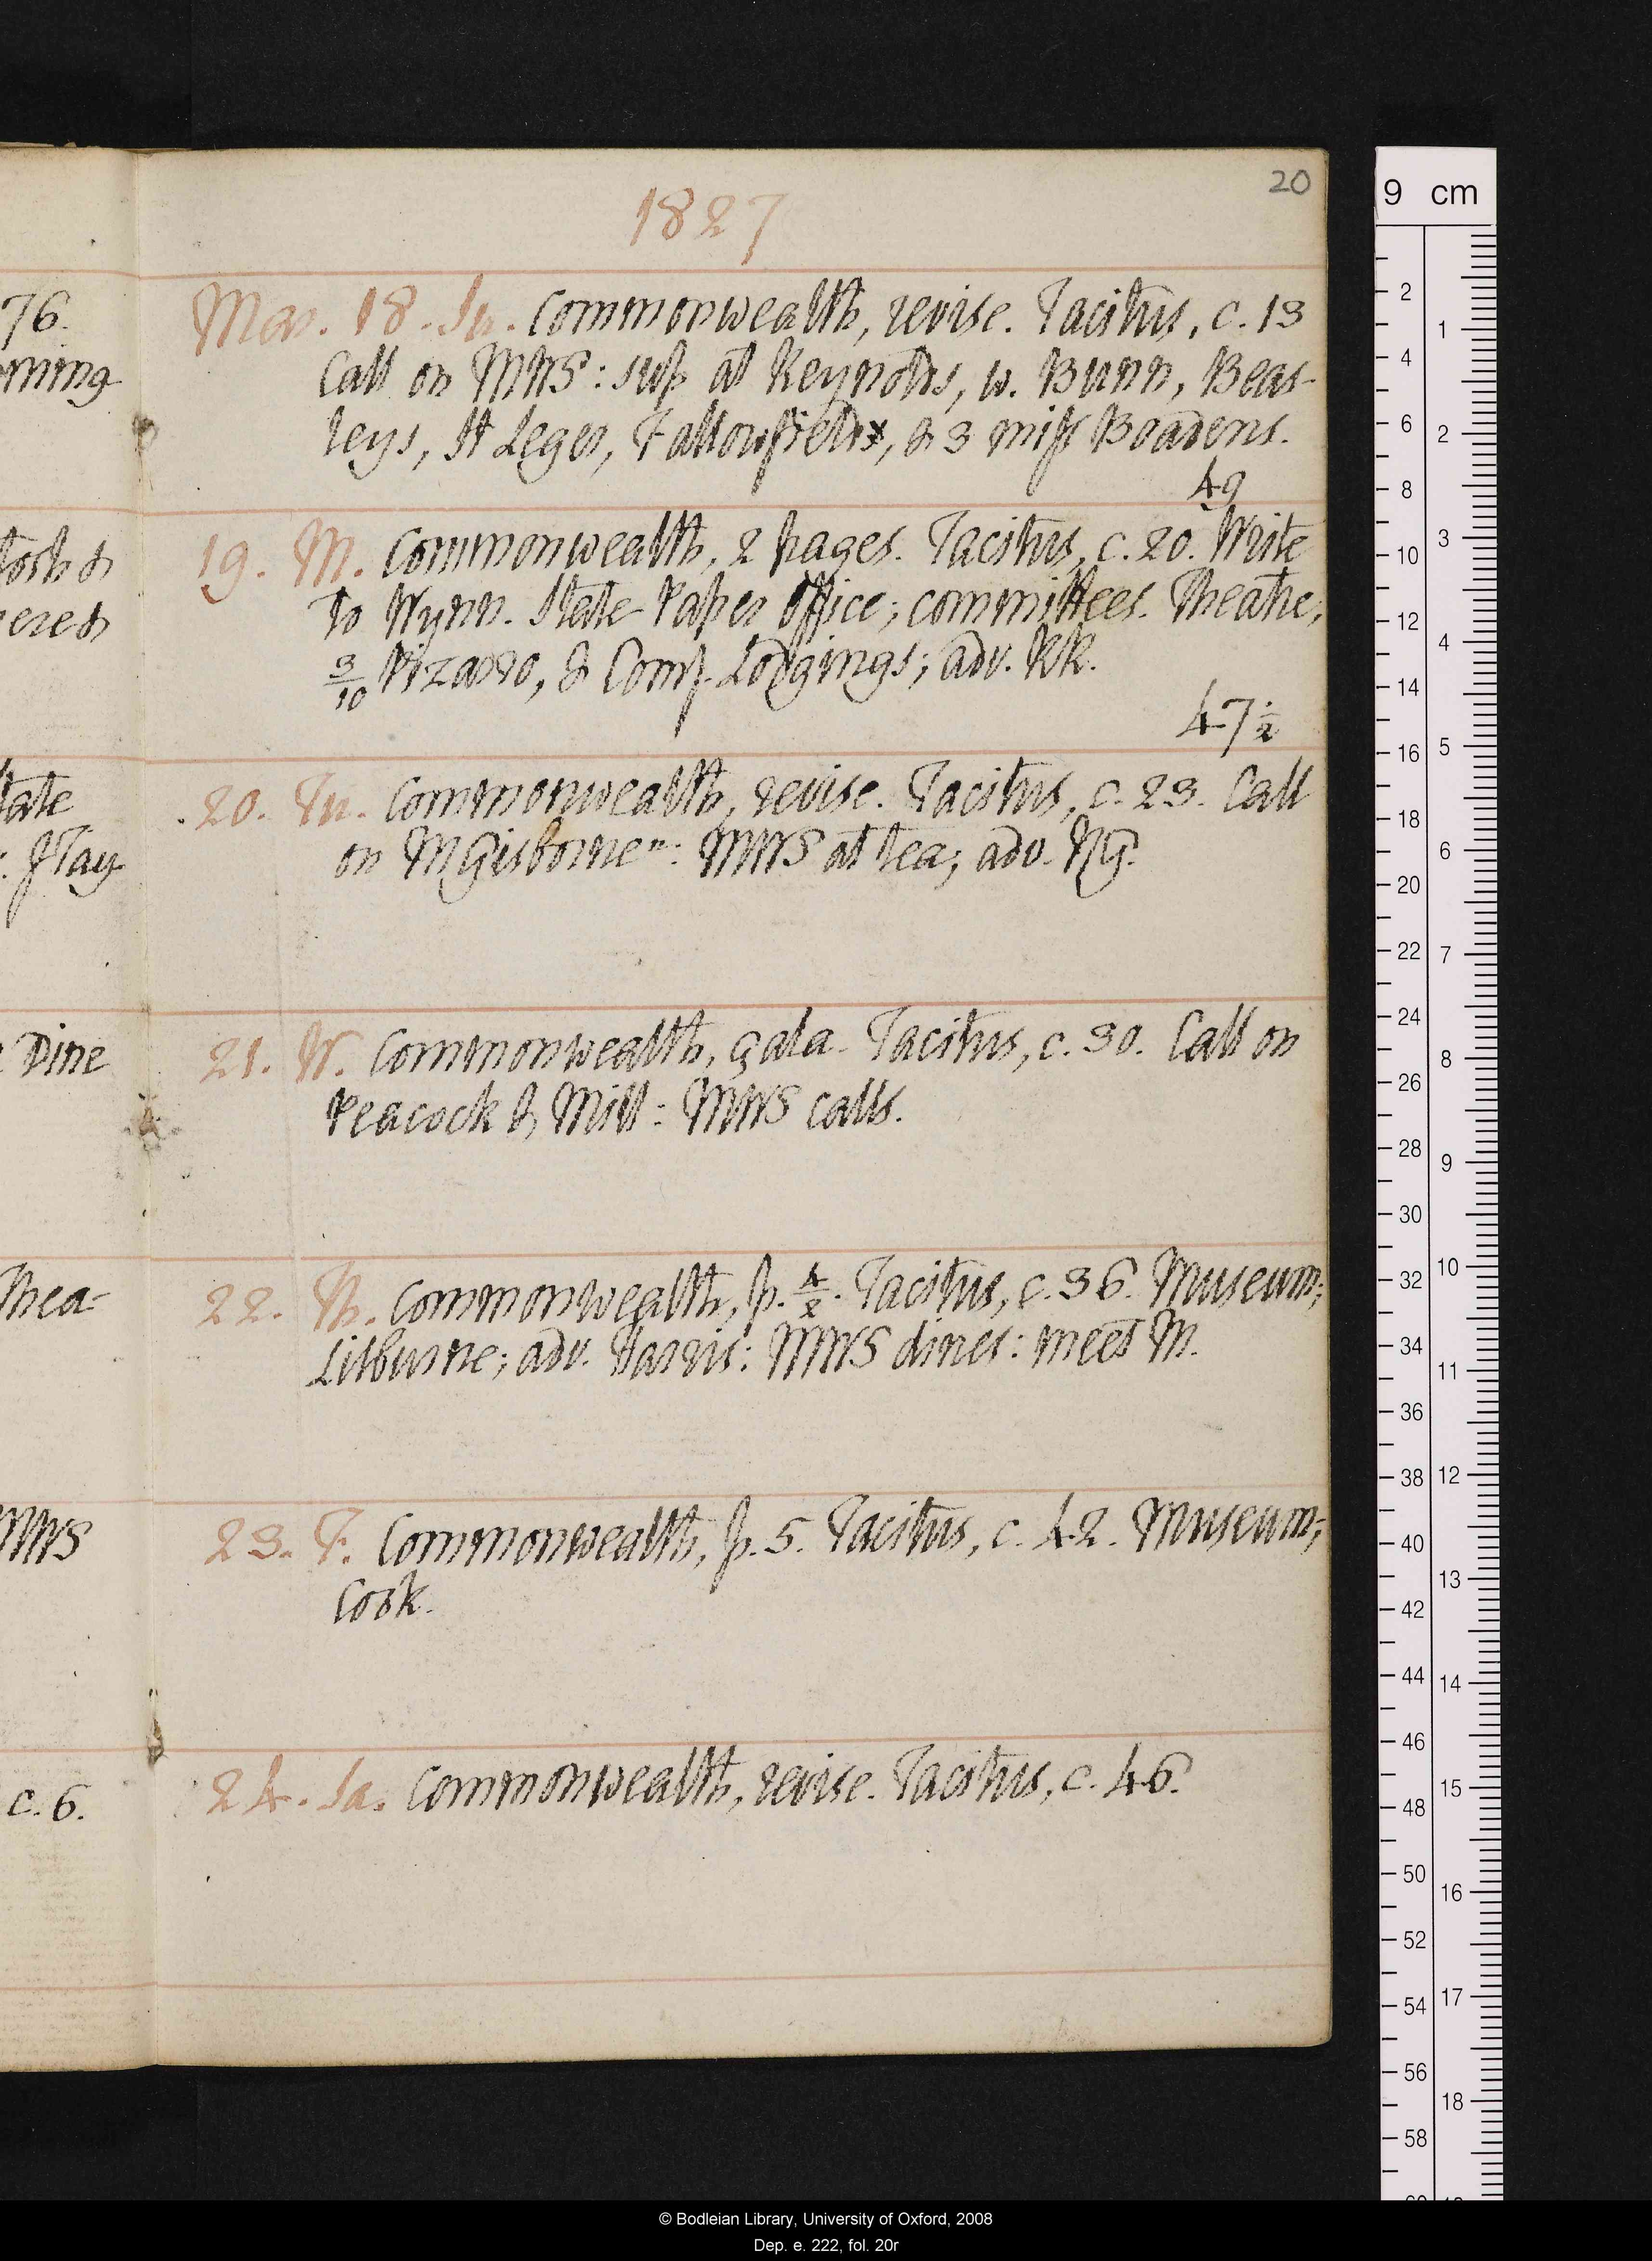 20
1827
76.
Mar. 18. Su. Commonwealth, revise. Tacitus, c. 13
rning
Call on MWS: sup at Kenny's, w. Bunn, Beaz-
leys, St Leger, Fallowfield, & 3 miss Boadens.
49
19. M. Commonwealth, 2 pages. Tacitus, c. 20. Write
to Wynn. State Paper Office; committees. Theatre,
ered
3/10 Pizarro, & Comf. Lodgings; adv. KK.
47½
tate
20. Tu. Commonwealth, revise. Tacitus, c. 23. Call
: JTay
on MGisborne n: MWS at tea; adv. NG.
Dine
21. W. Commonwealth, gala. Tacitus, c. 30. Call on
Peacock & Mill: MWS calls.
Thea-
22. Th. Commonwealth, p. 4/2. Tacitus, c. 36. Museum;
Lilburne; adv. Harris: MWS dines: meet M.
MWS
23. F. Commonwealth, p. 5. Tacitus, c. 42. Museum;
Cook.
c. 6.
24. Sa. Commonwealth, revise. Tacitus, c. 46.
9 cm
2 4 6 8 10 12 14 16 18 20 22 24 26 28 30 32 34 36 38 40 42 44 46 48 50 52 54 56 58
1 2 3 4 5 6 7 8 9 10 11 12 13 14 15 16 17 18
© Bodleian Library, University of Oxford, 2008
Dep. e. 222, fol. 20r